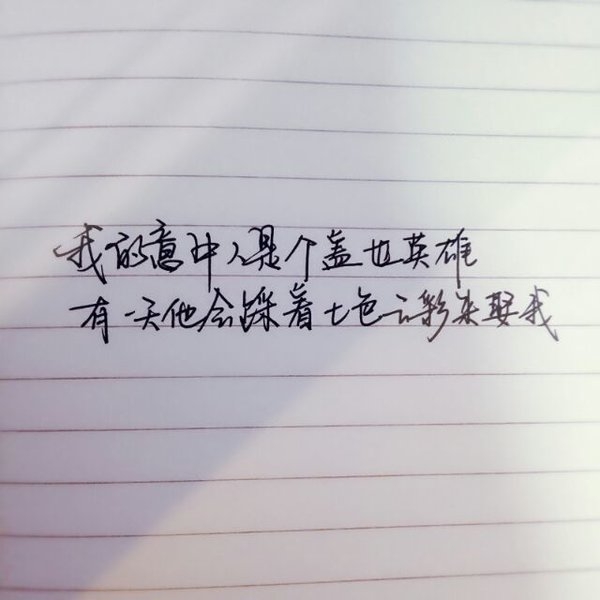 我的意中人是个盖世英雄
有一天他会踩着七色云彩来娶我